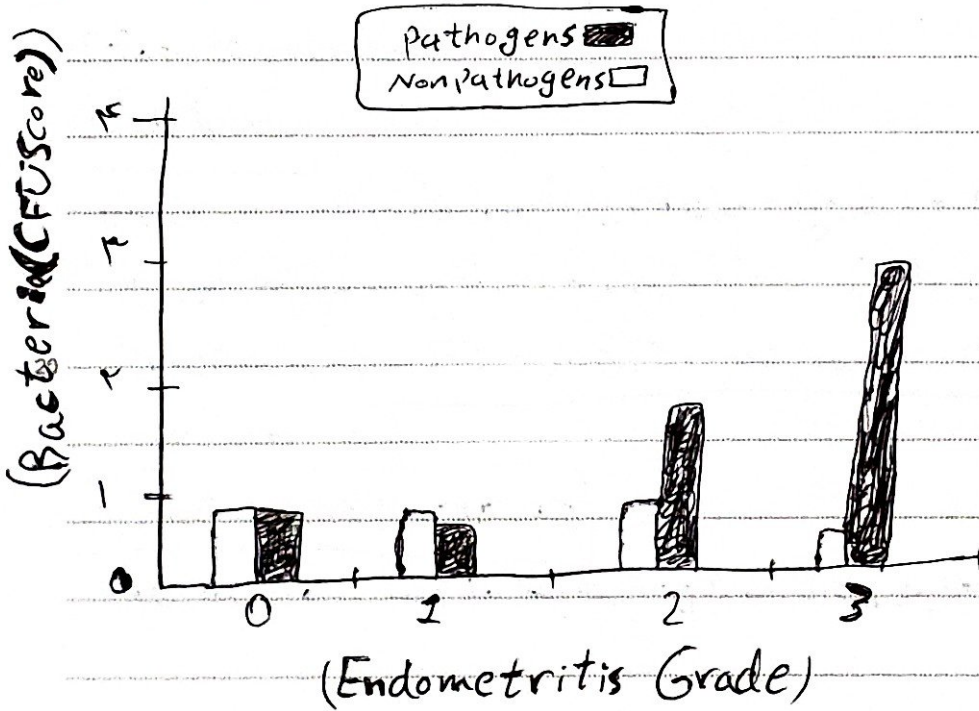 pathogens
Nonpathogens
(Bacteria(CFUiScore))
۳
۲
۱
0
0 1 2 3
(Endometritis Grade)